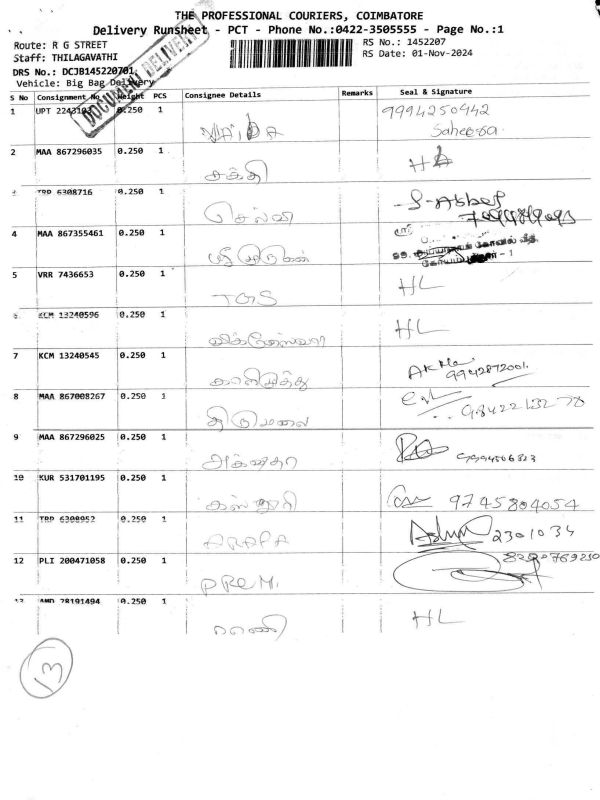 THE PROFESSIONAL COURIERS, COIMBATORE
Delivery Runsheet - PCT - Phone No.:0422-3505555 - Page No.:1
Route: R G STREET
RS No.: 1452207
Staff: THILAGAVATHI
RS Date: 01-Nov-2024
DRS No.: DCJB145220701
Vehicle: Big Bag Delivery
DOCUMENT DELIVERY
S No Consignment No Weight PCS Consignee Details Remarks Seal & Signature
1 UPT 0.250 1 9994250442
2 MAA 867296035 0.250 1 சக்தி
3 TRP 6308716 0.250 1 செல்வி
4 MAA 867355461 0.250 1 ஸ்ரீ முருகன்
5 VRR 7436653 0.250 1 TGS HL
6 KCM 13240596 0.250 1 HL
7 KCM 13240545 0.250 1 காளிமுத்து 9942872001
8 MAA 867008267 0.250 1 திருமலை
9 MAA 867296025 0.250 1
10 KUR 531701195 0.250 1 கஸ்தூரி 9745804054
11 TRP 6308952 0.250 1 2301034
12 PLI 200471058 0.250 1 PREM.
13 AMD 78191494 0.250 1 ராணி HL
13